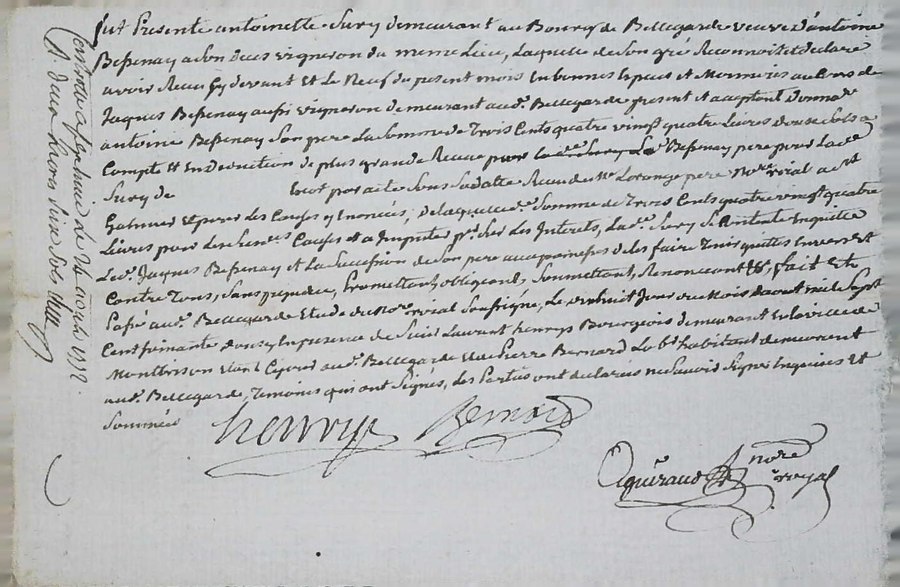 fut Presente antoinette Sury demeurant au Bourg de Bellegarde veuve d'antoine
Bessenay a son deces vigneron du meme Lieu, Laquelle de Son gré Reconnoit et declare
avoir Recu cy devant Et Le Neuf du present mois En bonnes Especes et Monnoies au Cours de
Jaques Bessenay aussi vigneron demeurant aud. Bellegarde present et acceptant donnar
antoine Bessenay Son pere La Somme de Trois Cents quatre vingt quatre Livres douze Sols a
Compte Et En Deduction de plus grande Recue par Bessenay pere pour Lad.
Sury de Erot par acte Sous Sa datte Recu de Me Lorange pere Nore roial a St
Galmier Et pour Les Causes y Enoncées, de laquelle d. Somme de Trois Cents quatre vingt quatre
Livres pour Les Causes Et a Imputer Les Interets, La d. Sury S'Contente En quitte
Led. Jaques Bessenay Et La Succession de Son pere aux promesses de les faire Tenir quittes Envers Et
Contre Tous, Sans prejudice, Promettant, obligeant, Soumettant, Renoncant &, fait Et
Passé aud. Bellegarde Etude du Nore roial Soussigne, Le vinhuit Jour du Mois daout mil Sept
Cent En presence de Sieur Laurant henrys Bourgeois demeurant En La ville de
Montbrison Etant Ce jour aud. Bellegarde Et de Pierre Bernard habitant demeurant
aud. Bellegarde, Temoins qui ont Signés, Les Parties ont declarees ne Savoir Signer Enquises Et
Sommées
henrys Bernard
Guiraud Nore royal
Controllé a
R. deux Livres Six Sols